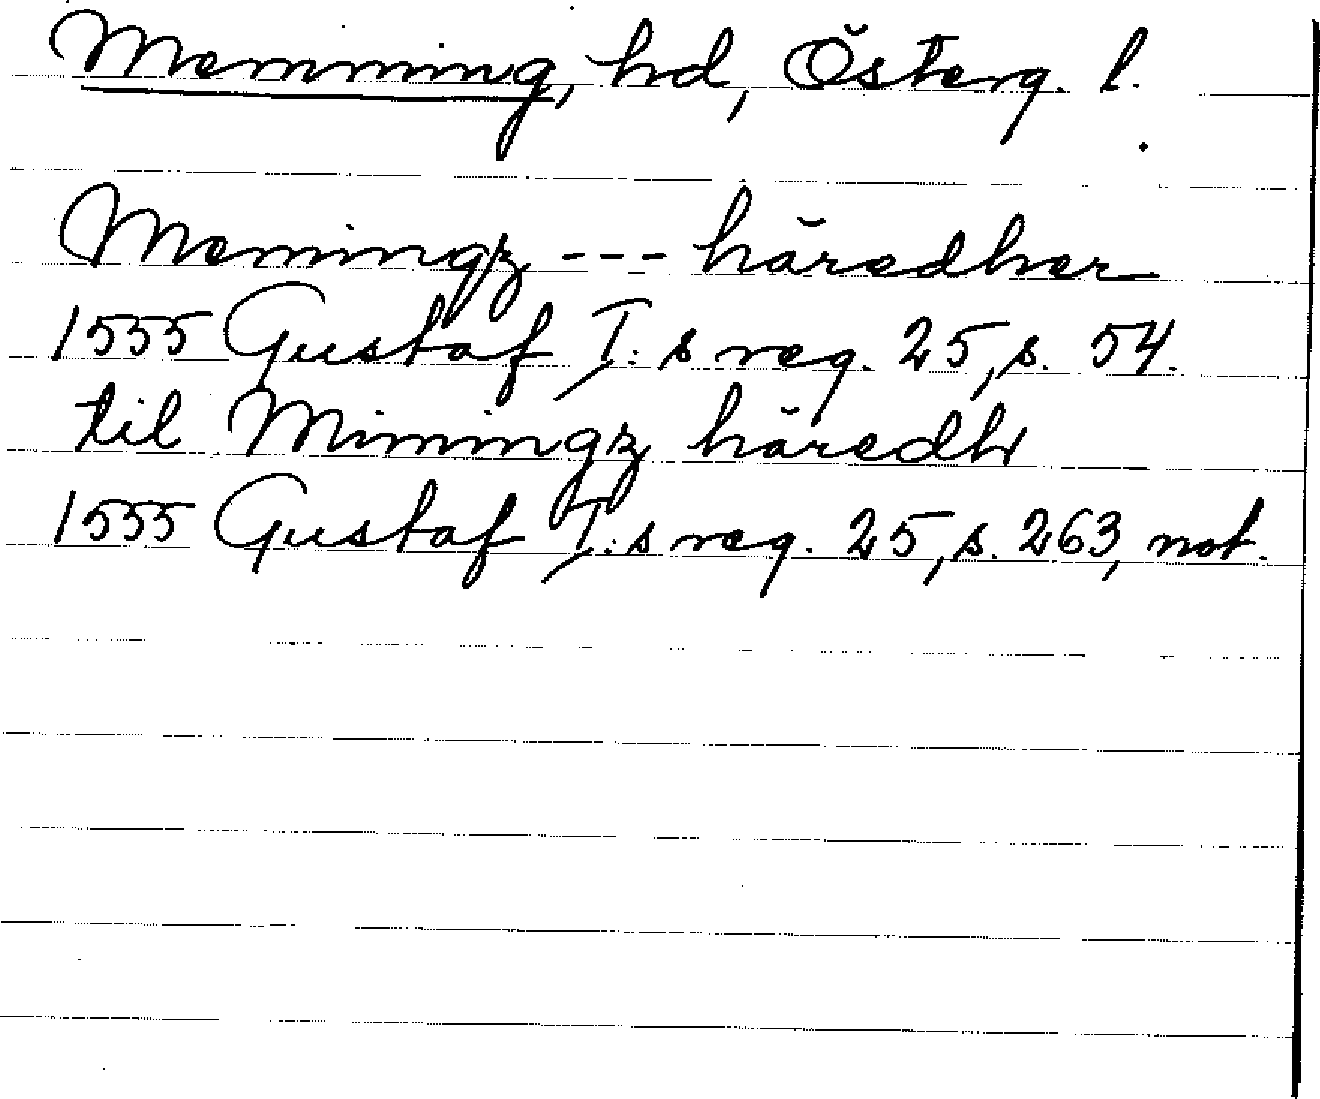 Memming, hd, Österg. l.
Memingz --- häredher
1555 Gustaf I:s reg. 25, s. 54.
til Mimingz häredh
1555 Gustaf I:s reg. 25, s. 263, not.